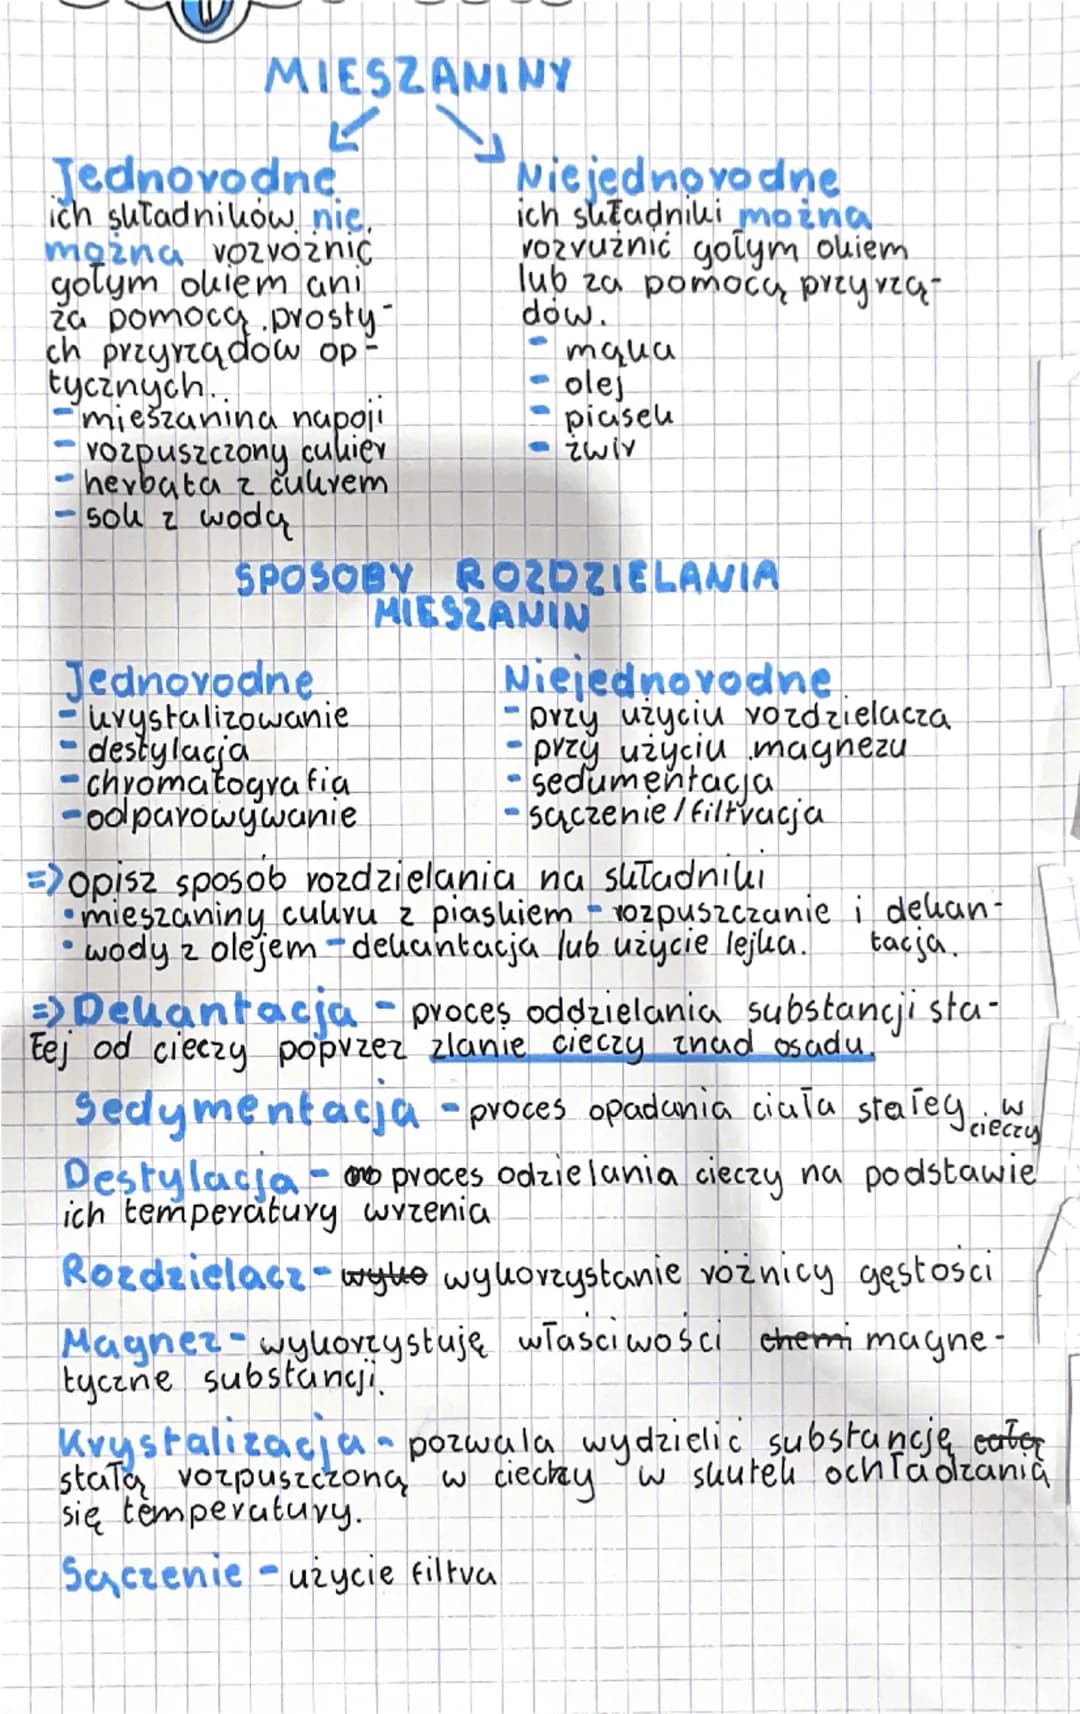 MIESZANINY
Jednorodne
ich składników nie
można rozróżnić
gołym okiem ani
za pomocą prosty-
ch przyrządów op-
tycznych.
- mieszanina napoji
- rozpuszczony cukier
- herbata z cukrem
- sok z wodą
Niejednorodne
ich składniki można
rozruźnić gołym okiem
lub za pomocą przyrzą-
dów.
- mąka
- olej
- piasek
- żwir
SPOSOBY ROZDZIELANIA
MIESZANIN
Jednorodne
- krystalizowanie
- destylacja
- chromatografia
- odparowywanie
Niejednorodne
- przy użyciu rozdzielacza
- przy użyciu magnezu
- sedumentacja
- sączenie/filtracja
=> opisz sposób rozdzielania na składniki
• mieszaniny cukru z piaskiem - rozpuszczanie i dekan-
tacja.
• wody z olejem - dekantacja lub użycie lejka.
=> Dekantacja - proces oddzielania substancji sta-
łej od cieczy poprzez zlanie cieczy znad osadu.
Sedymentacja - proces opadania ciała stałeg w
cieczy
Destylacja - proces odzielania cieczy na podstawie
ich temperatury wrzenia
Rozdzielacz - wyko wykorzystanie różnicy gęstości
Magnez - wykorzystuję właściwości chemi magne-
tyczne substancji.
Krystalizacja - pozwala wydzielić substancję
stałą rozpuszczoną w cieczy w skutek ochładzania
się temperatury.
Sączenie - użycie filtra